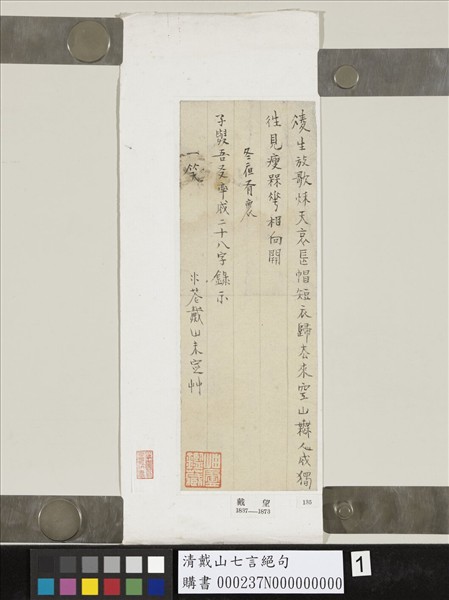 淩生放歌秌天哀長帽短衣歸去來空山無人成獨
往見瘦槑華相向開
冬夜有褱
吾友率成二十八字錄示
一笑
戴山未定艸
戴 望
1837—1873
135
清戴山七言絕句
購書 000237N000000000
1